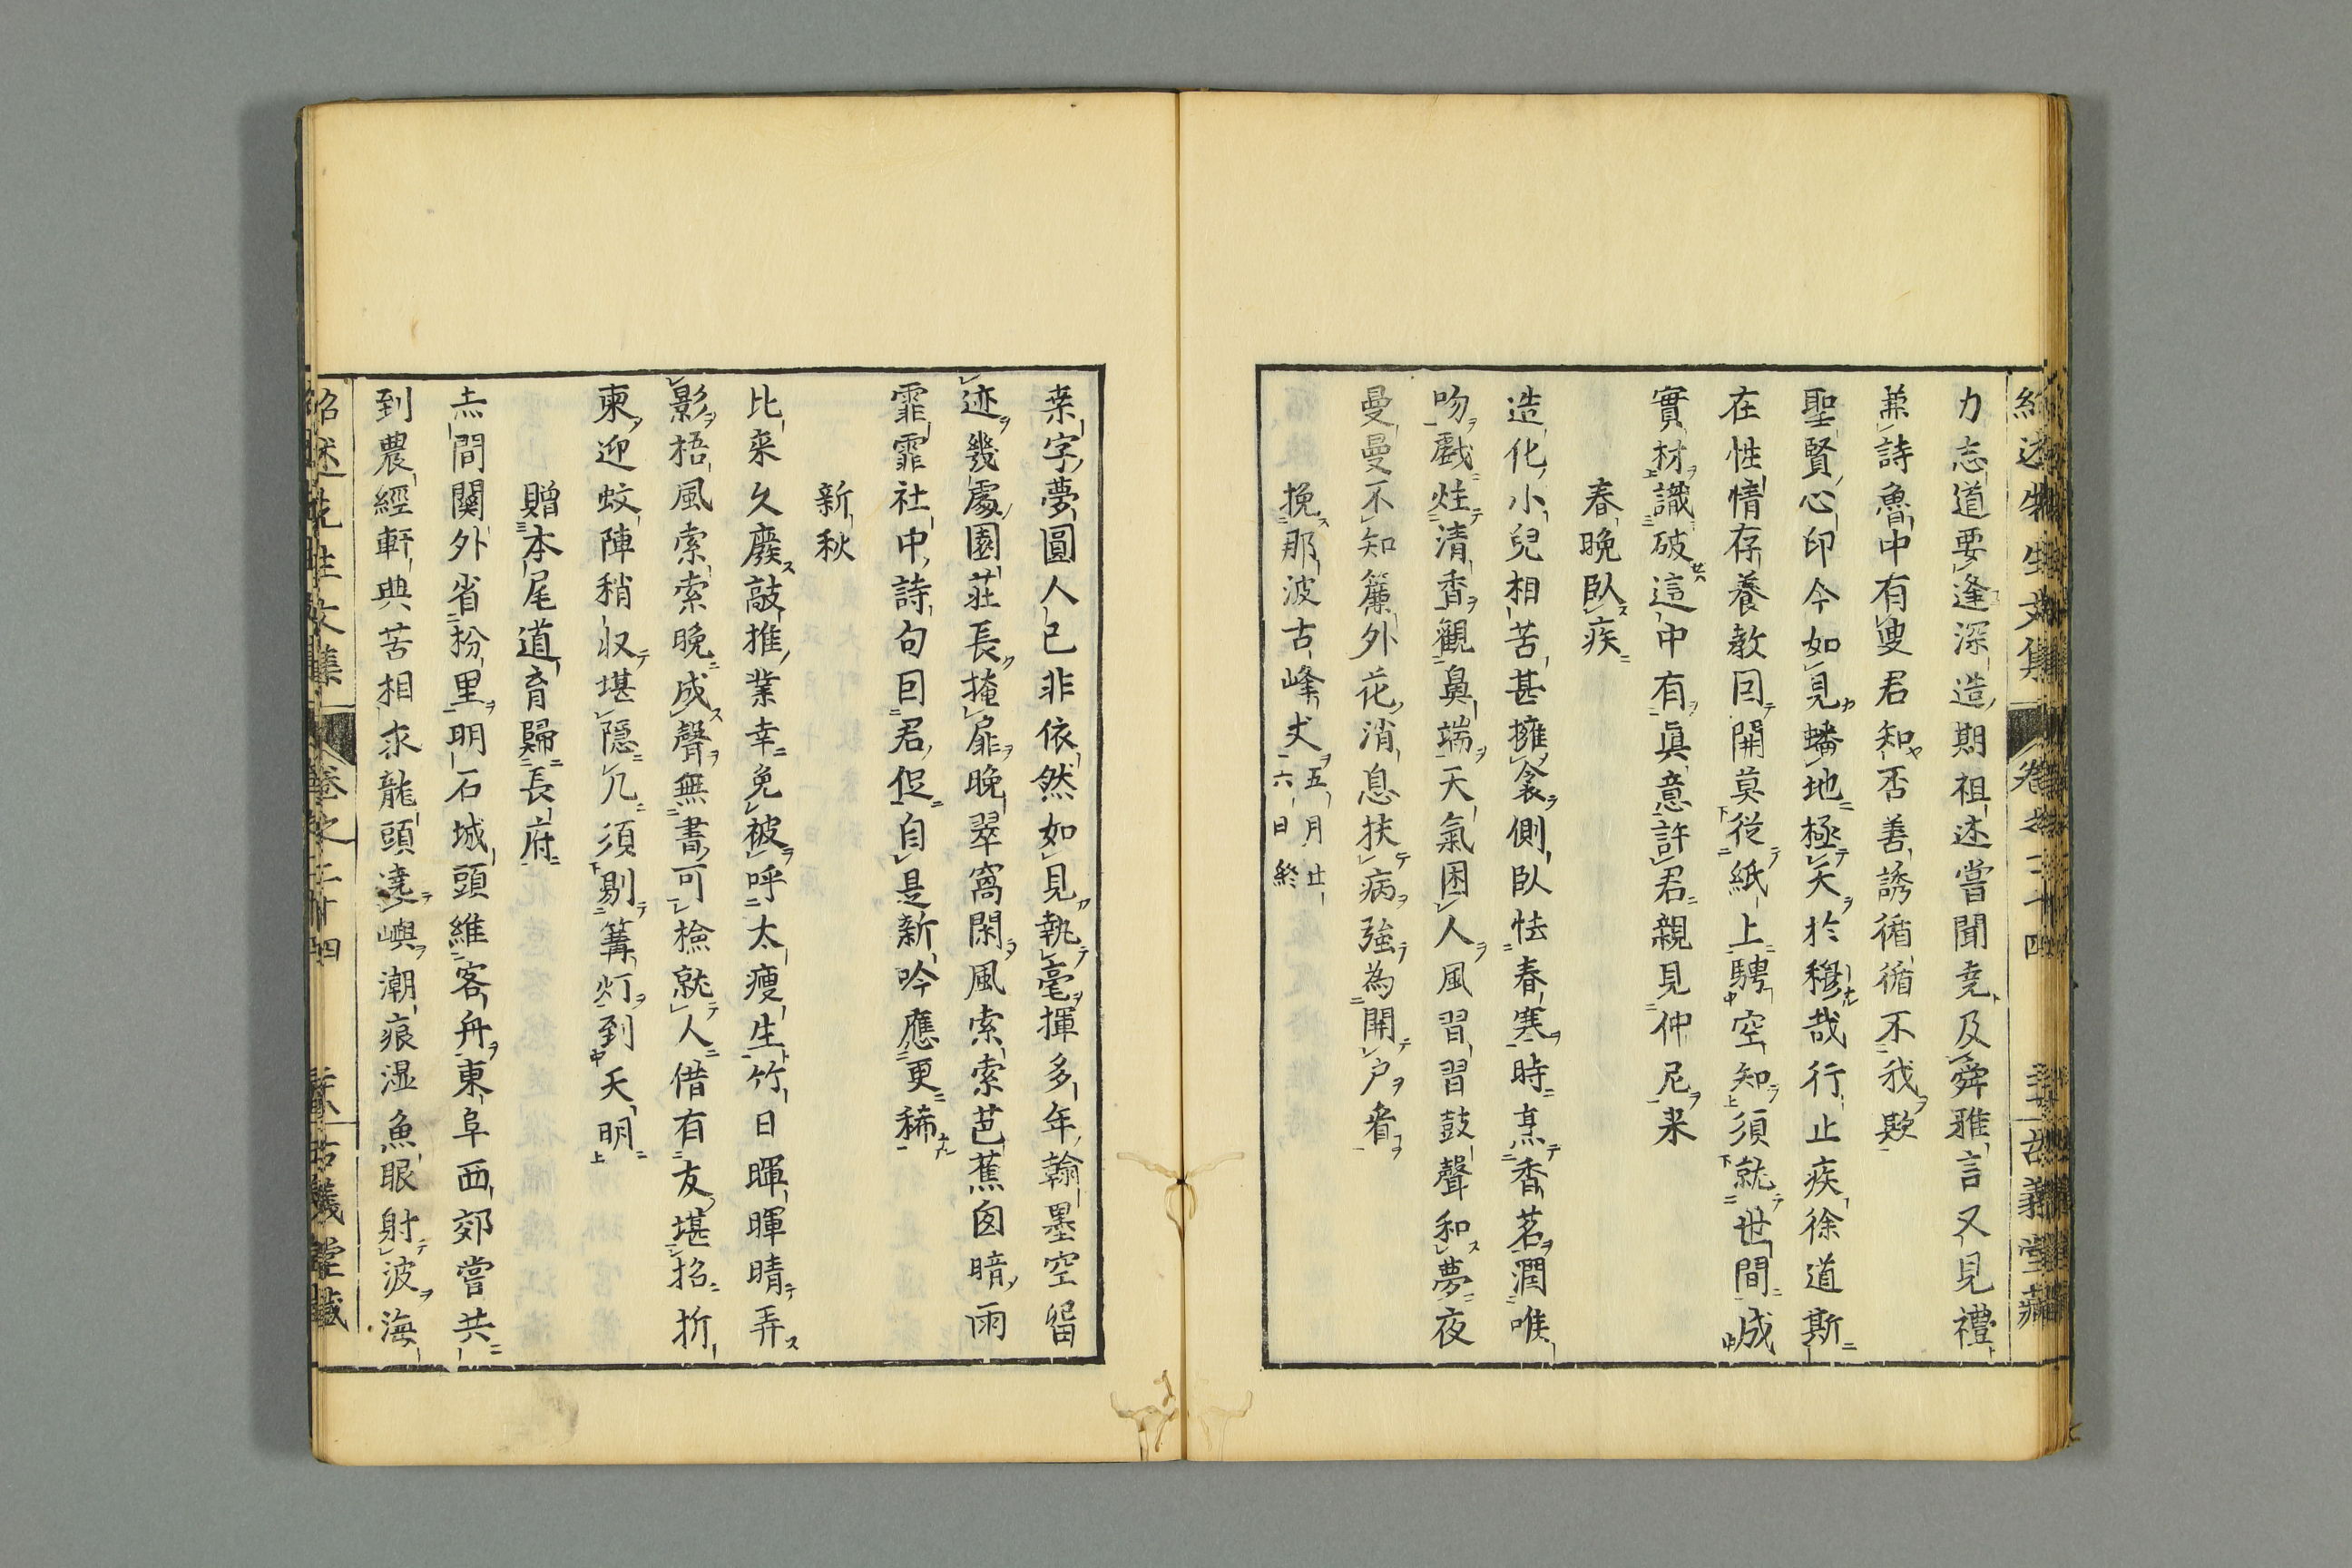 紹述先生文集 卷之二十四 古義堂藏
力志道要逢深造期祖述嘗聞堯及舜雅言又見禮
兼詩魯中有叟君知否善誘循循不我欺
聖賢心印今如見蟠地極天於穆哉行止疾徐道斯
在性情存養教因開莫從紙上騁空知須就世間成
實材識破這中有眞意許君親見仲尼来
春晚臥疾
造化小兒相苦甚擁衾側臥怯春寒時烹香茗潤喉
吻戲炷清香觀鼻端天氣困人風習習鼓聲和夢夜
曼曼不知簾外花消息扶病強為開戶看
挽那波古峰丈
五月廿
六日終
桒字夢圓人已非依然如見執毫揮多年翰墨空留
迹幾處園莊長掩扉晚翠窩閑風索索芭蕉囱暗雨
霏霏社中詩句因君促自是新吟應更稀
新秋
比来久廢敲推業幸免被呼太瘦生竹日暉暉晴弄
影梧風索索晚成聲無書可檢就人借有友堪招折
柬迎蚊陣稍収堪隠几須剔篝灯到天明
贈本尾道育歸長府
亦間關外省枌里明石城頭維客舟東阜西郊嘗共
到農經軒典苦相求龍頭遶嶼潮痕湿魚眼射波海
紹述先生文集 卷之二十四 古義堂藏